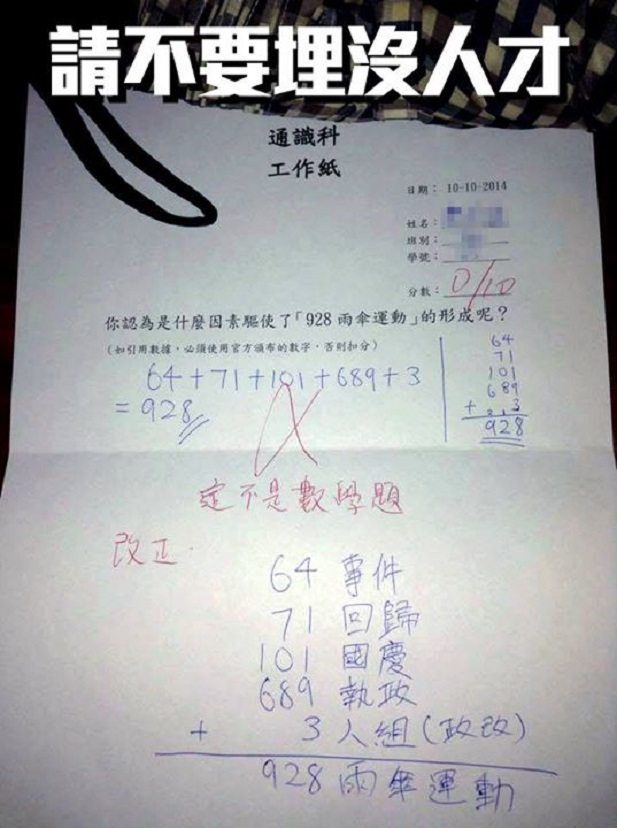 請不要埋沒人才
通識科
工作紙
日期： 10-10-2014
姓名：
班別：
學號：
分數： 0/10
你認為是什麼因素驅使了「928雨傘運動」的形成呢？
（如引用數據，必須使用官方頒布的數字，否則扣分）
64+71+101+689+3
= 928
64
71
101
689
+ 3
928
這不是數學題
改正
64 事件
71 回歸
101 國慶
689 執政
+ 3 人組(政改)
928 雨傘運動